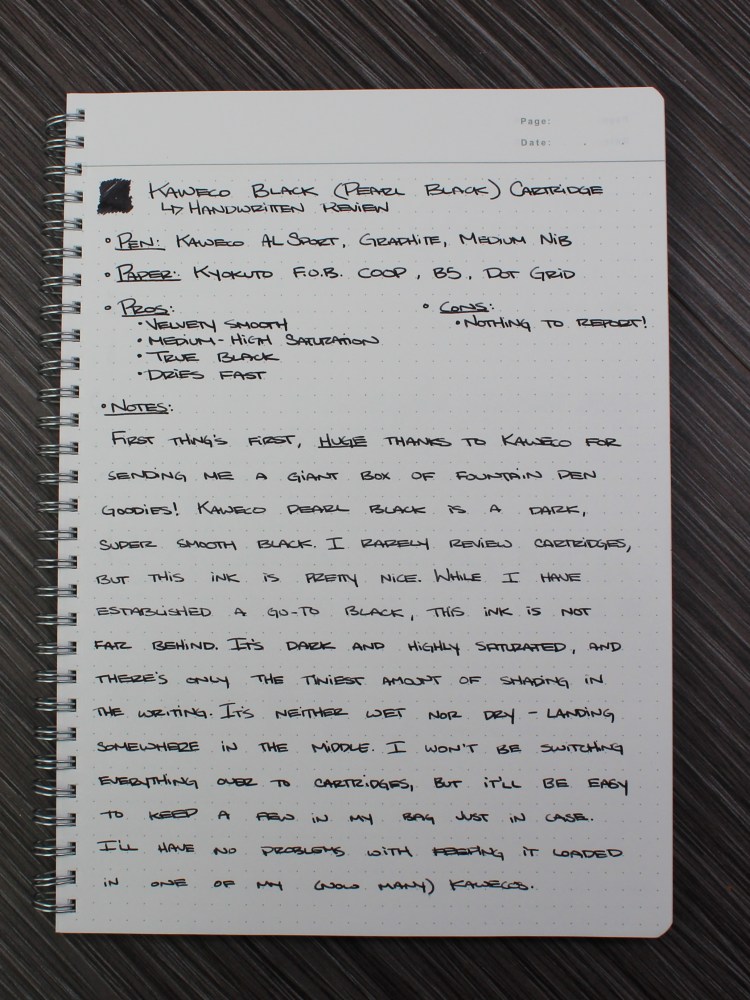 Page:
Date:
KAWECO BLACK (PEARL BLACK) CARTRIDGE
↳ HANDWRITTEN REVIEW
• PEN: KAWECO AL SPORT, GRAPHITE, MEDIUM NIB
• PAPER: KYOKUTO F.O.B. COOP, B5, DOT GRID
• PROS:
• VELVETY SMOOTH
• MEDIUM-HIGH SATURATION
• TRUE BLACK
• DRIES FAST
• CONS:
• NOTHING TO REPORT!
• NOTES:
FIRST THING'S FIRST, HUGE THANKS TO KAWECO FOR
SENDING ME A GIANT BOX OF FOUNTAIN PEN
GOODIES! KAWECO PEARL BLACK IS A DARK,
SUPER SMOOTH BLACK. I RARELY REVIEW CARTRIDGES,
BUT THIS INK IS PRETTY NICE. WHILE I HAVE
ESTABLISHED A GO-TO BLACK, THIS INK IS NOT
FAR BEHIND. IT'S DARK AND HIGHLY SATURATED, AND
THERE'S ONLY THE TINIEST AMOUNT OF SHADING IN
THE WRITING. IT'S NEITHER WET NOR DRY - LANDING
SOMEWHERE IN THE MIDDLE. I WON'T BE SWITCHING
EVERYTHING OVER TO CARTRIDGES, BUT IT'LL BE EASY
TO KEEP A FEW IN MY BAG JUST IN CASE.
I'LL HAVE NO PROBLEMS WITH KEEPING IT LOADED
IN ONE OF MY (NOW MANY) KAWECOS.